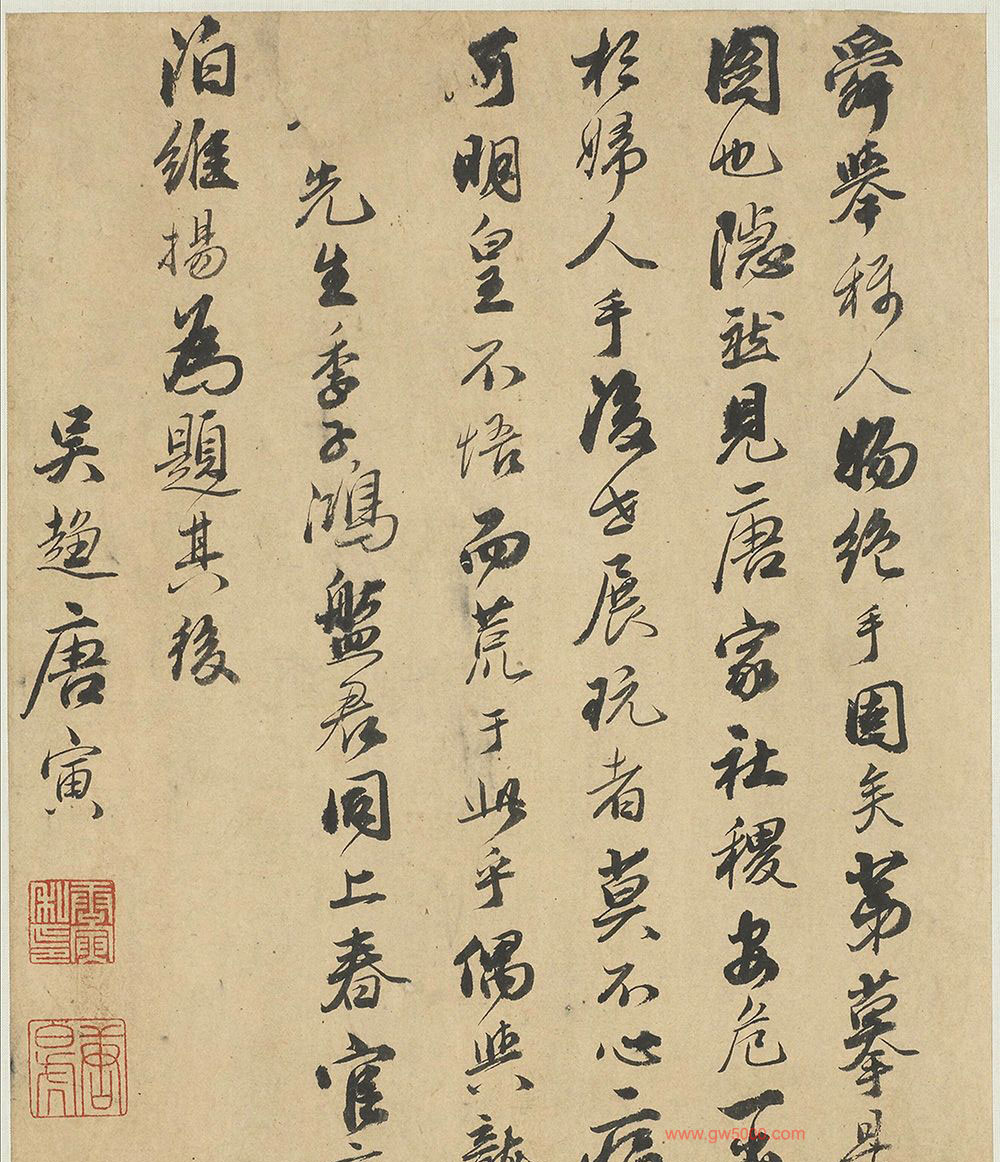 舜舉稱人物絕手固矣第摹
圖也隱然見唐家社稷安危一
於婦人手後世展玩者莫不心
可明皇不悟而荒于此乎偶與
先生季子鴻盤君同上春官
泊維揚為題其後
吳趨唐寅
唐寅私印
唐白虎
www.gw5000.com